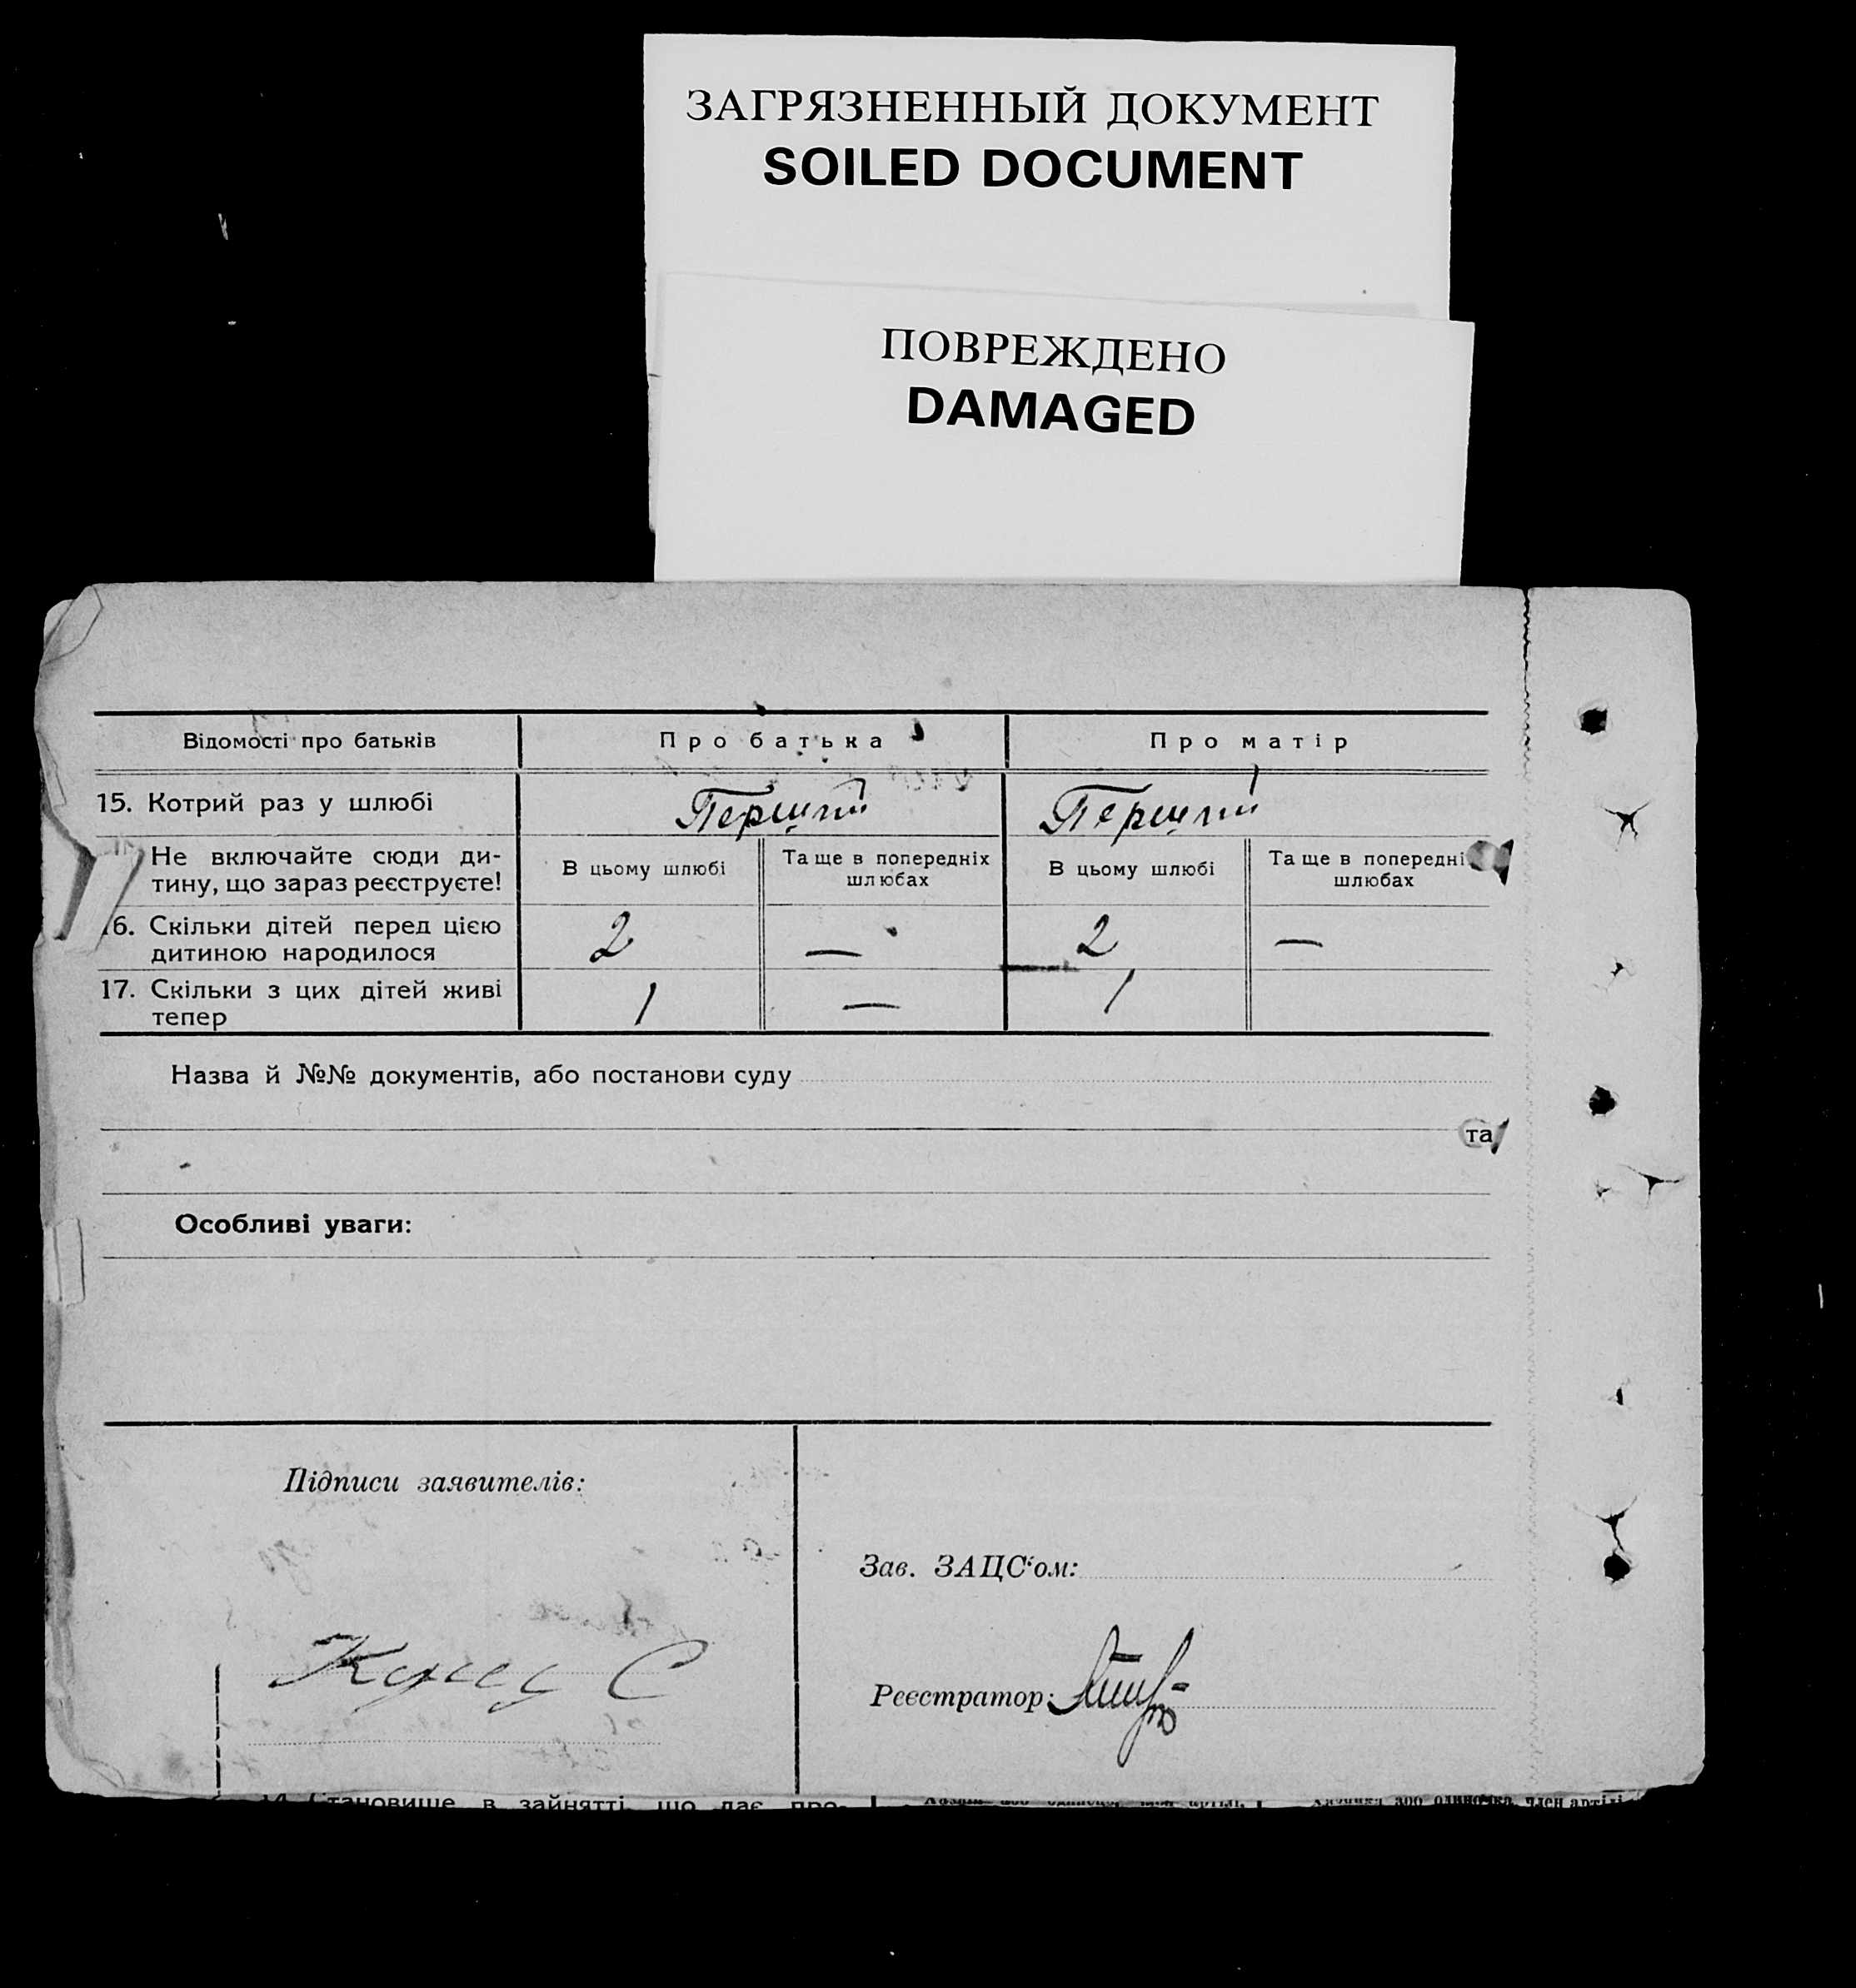 ЗАГРЯЗНЕННЫЙ ДОКУМЕНТ
SOILED DOCUMENT
ПОВРЕЖДЕНО
DAMAGED
Відомості про батьків Про батька Про матір
15. Котрий раз у шлюбі Перший Перший
Не включайте сюди ди-
тину, що зараз реєструєте!
В цьому шлюбі
Та ще в попередніх
шлюбах
В цьому шлюбі
Та ще в попередні
шлюбах
16. Скільки дітей перед цією
дитиною народилося
2 — 2 —
17. Скільки з цих дітей живі
тепер
1 — 1
Назва й №№ документів, або постанови суду
та
Особливі уваги:
Підписи заявителів:
Зав. ЗАЦС‘ом:
Реєстратор:
14. Становище в зайнятті, що дає про-